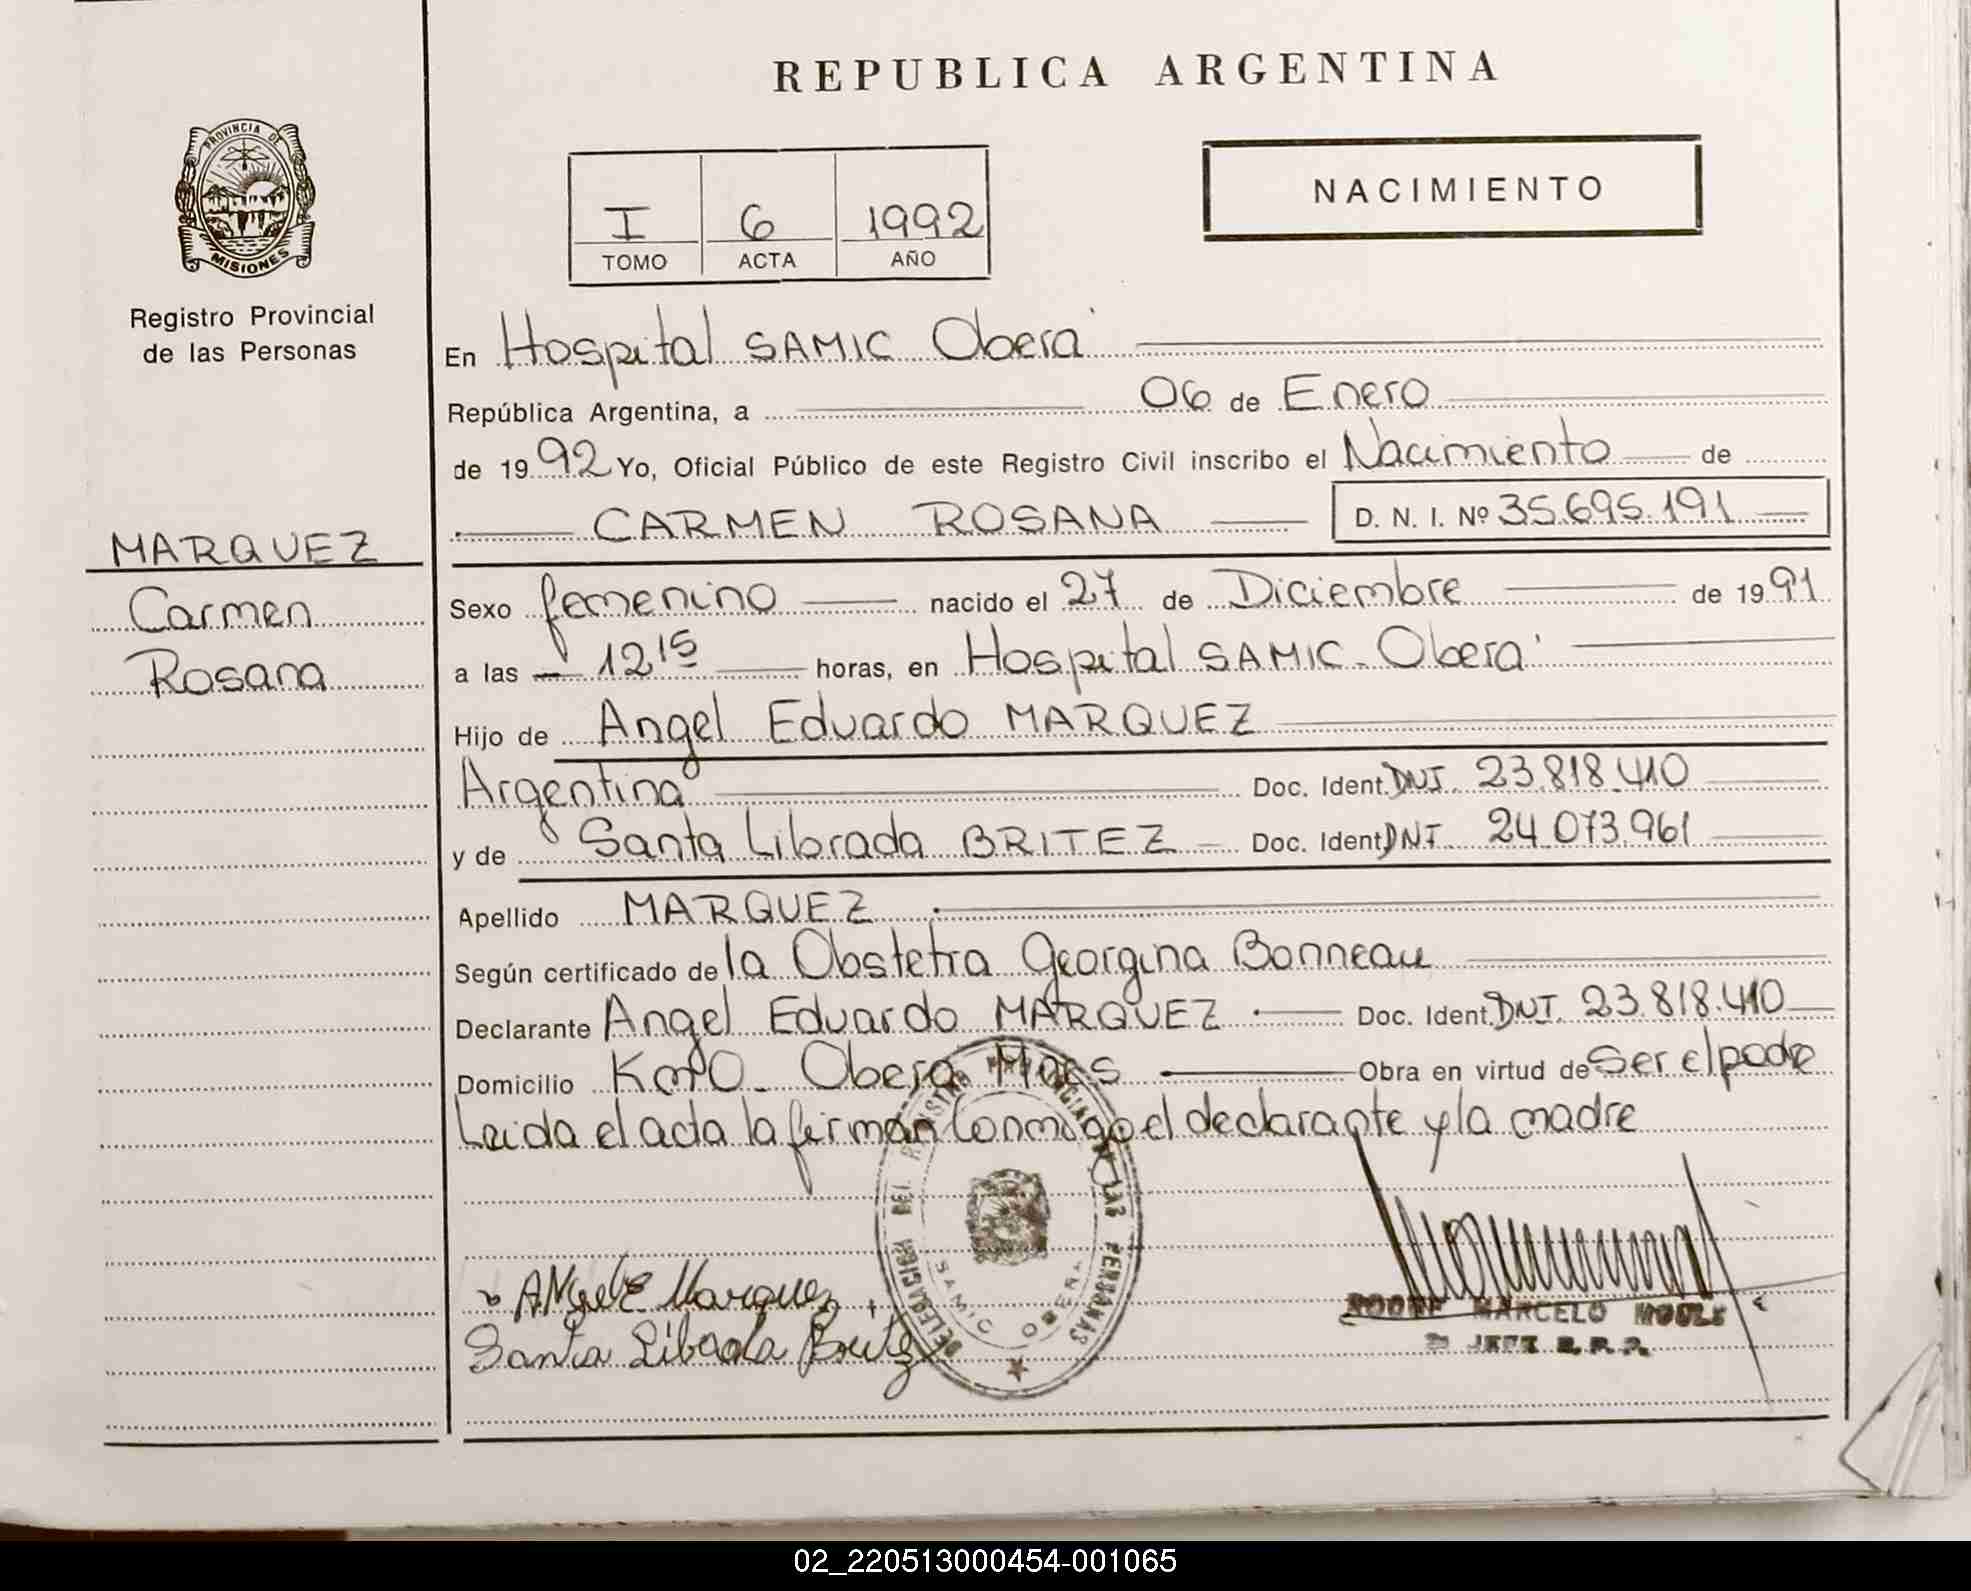 REPUBLICA ARGENTINA
PROVINCIA DE
MISIONES
Registro Provincial
de las Personas
I 6 1992
TOMO ACTA AÑO
NACIMIENTO
En Hospital SAMIC Oberá
República Argentina, a 06 de Enero
de 1992 Yo, Oficial Público de este Registro Civil inscribo el Nacimiento de
CARMEN ROSANA D. N. I. Nº 35.695.191
MARQUEZ
Carmen
Rosana
Sexo femenino nacido el 27 de Diciembre de 1991
a las 12 15 horas, en Hospital SAMIC - Oberá
Hijo de Angel Eduardo MARQUEZ
Argentina Doc. Ident. DNI. 23.818.410
y de Santa Librada BRITEZ Doc. Ident. DNI 24.073.961
Apellido MARQUEZ
Según certificado de la Obstetra Georgina Bonneau
Declarante Angel Eduardo MARQUEZ Doc. Ident. DNI. 23.818.410
Domicilio Km 0 - Obera Mnes Obra en virtud de Ser el padre
Leida el acta la firman Conmigo el declarante y la madre
DELEGACION DEL REGISTRO PROVINCIAL DE LAS PERSONAS
SAMIC OBERA
Marquez
Santa Librada Britez
MARCELO
JEFE R. P. P.
02_220513000454-001065